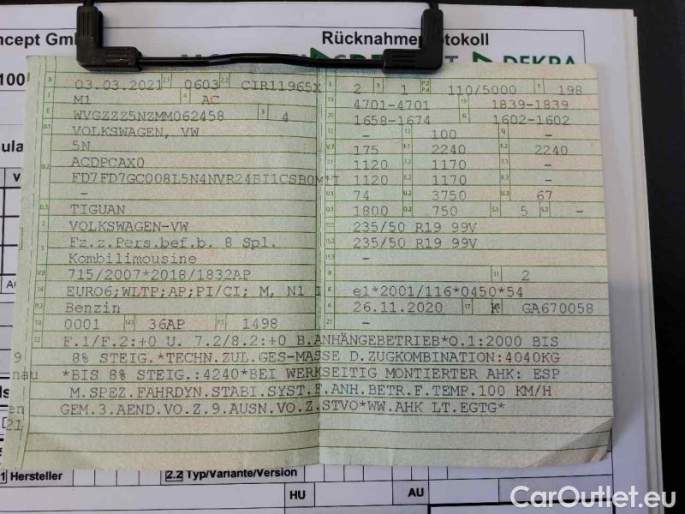 ncept Gmb
Rücknahmeprotokoll
DEKRA
100
03.03.2021 0603 CIR11965X
M1 AC
WVGZZZ5NZMM062458 4
VOLKSWAGEN, VW
5N
ACDPCAX0
TIGUAN
VOLKSWAGEN-VW
Fz.z.Pers.bef.b. 8 Spl.
Kombilimousine
715/2007*2018/1832AP
EURO6;WLTP;AP;PI/CI; M, N1 I
Benzin
0001 36AP 1498
2 1 110/5000 198
4701-4701 1839-1839
1658-1674 1602-1602
- 100 -
175 2240 2240
1120 1170 -
1120 1170 -
74 3750 67
1800 750 5 -
235/50 R19 99V
235/50 R19 99V
-
- 2
e1*2001/116*0450*54
26.11.2020 K GA670058
F.1/F.2:+0 U. 7.2/8.2:+0 B.ANHÄNGEBETRIEB*O.1:2000 BIS
8% STEIG.*TECHN.ZUL.GES-MASSE D.ZUGKOMBINATION:4040KG
*BIS 8% STEIG.:4240*BEI WERKSEITIG MONTIERTER AHK: ESP
M.SPEZ.FAHRDYN.STABI.SYST.F.ANH.BETR.F.TEMP.100 KM/H
GEM.3.AEND.VO.Z.9.AUSN.VO.Z.STVO*WW.AHK LT.EGTG*
9
nau
en
21
Hersteller
2.2 Typ/Variante/Version
HU
AU
CarOutlet.eu